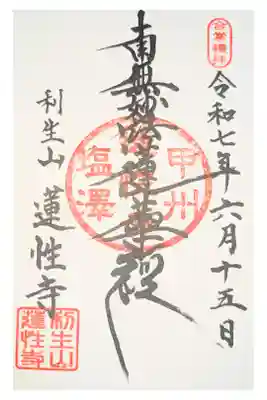 合掌禮拝
令和七年六月十五日
南無妙法蓮華経
甲州
塩澤
利生山
蓮性寺
利生山
蓮性寺